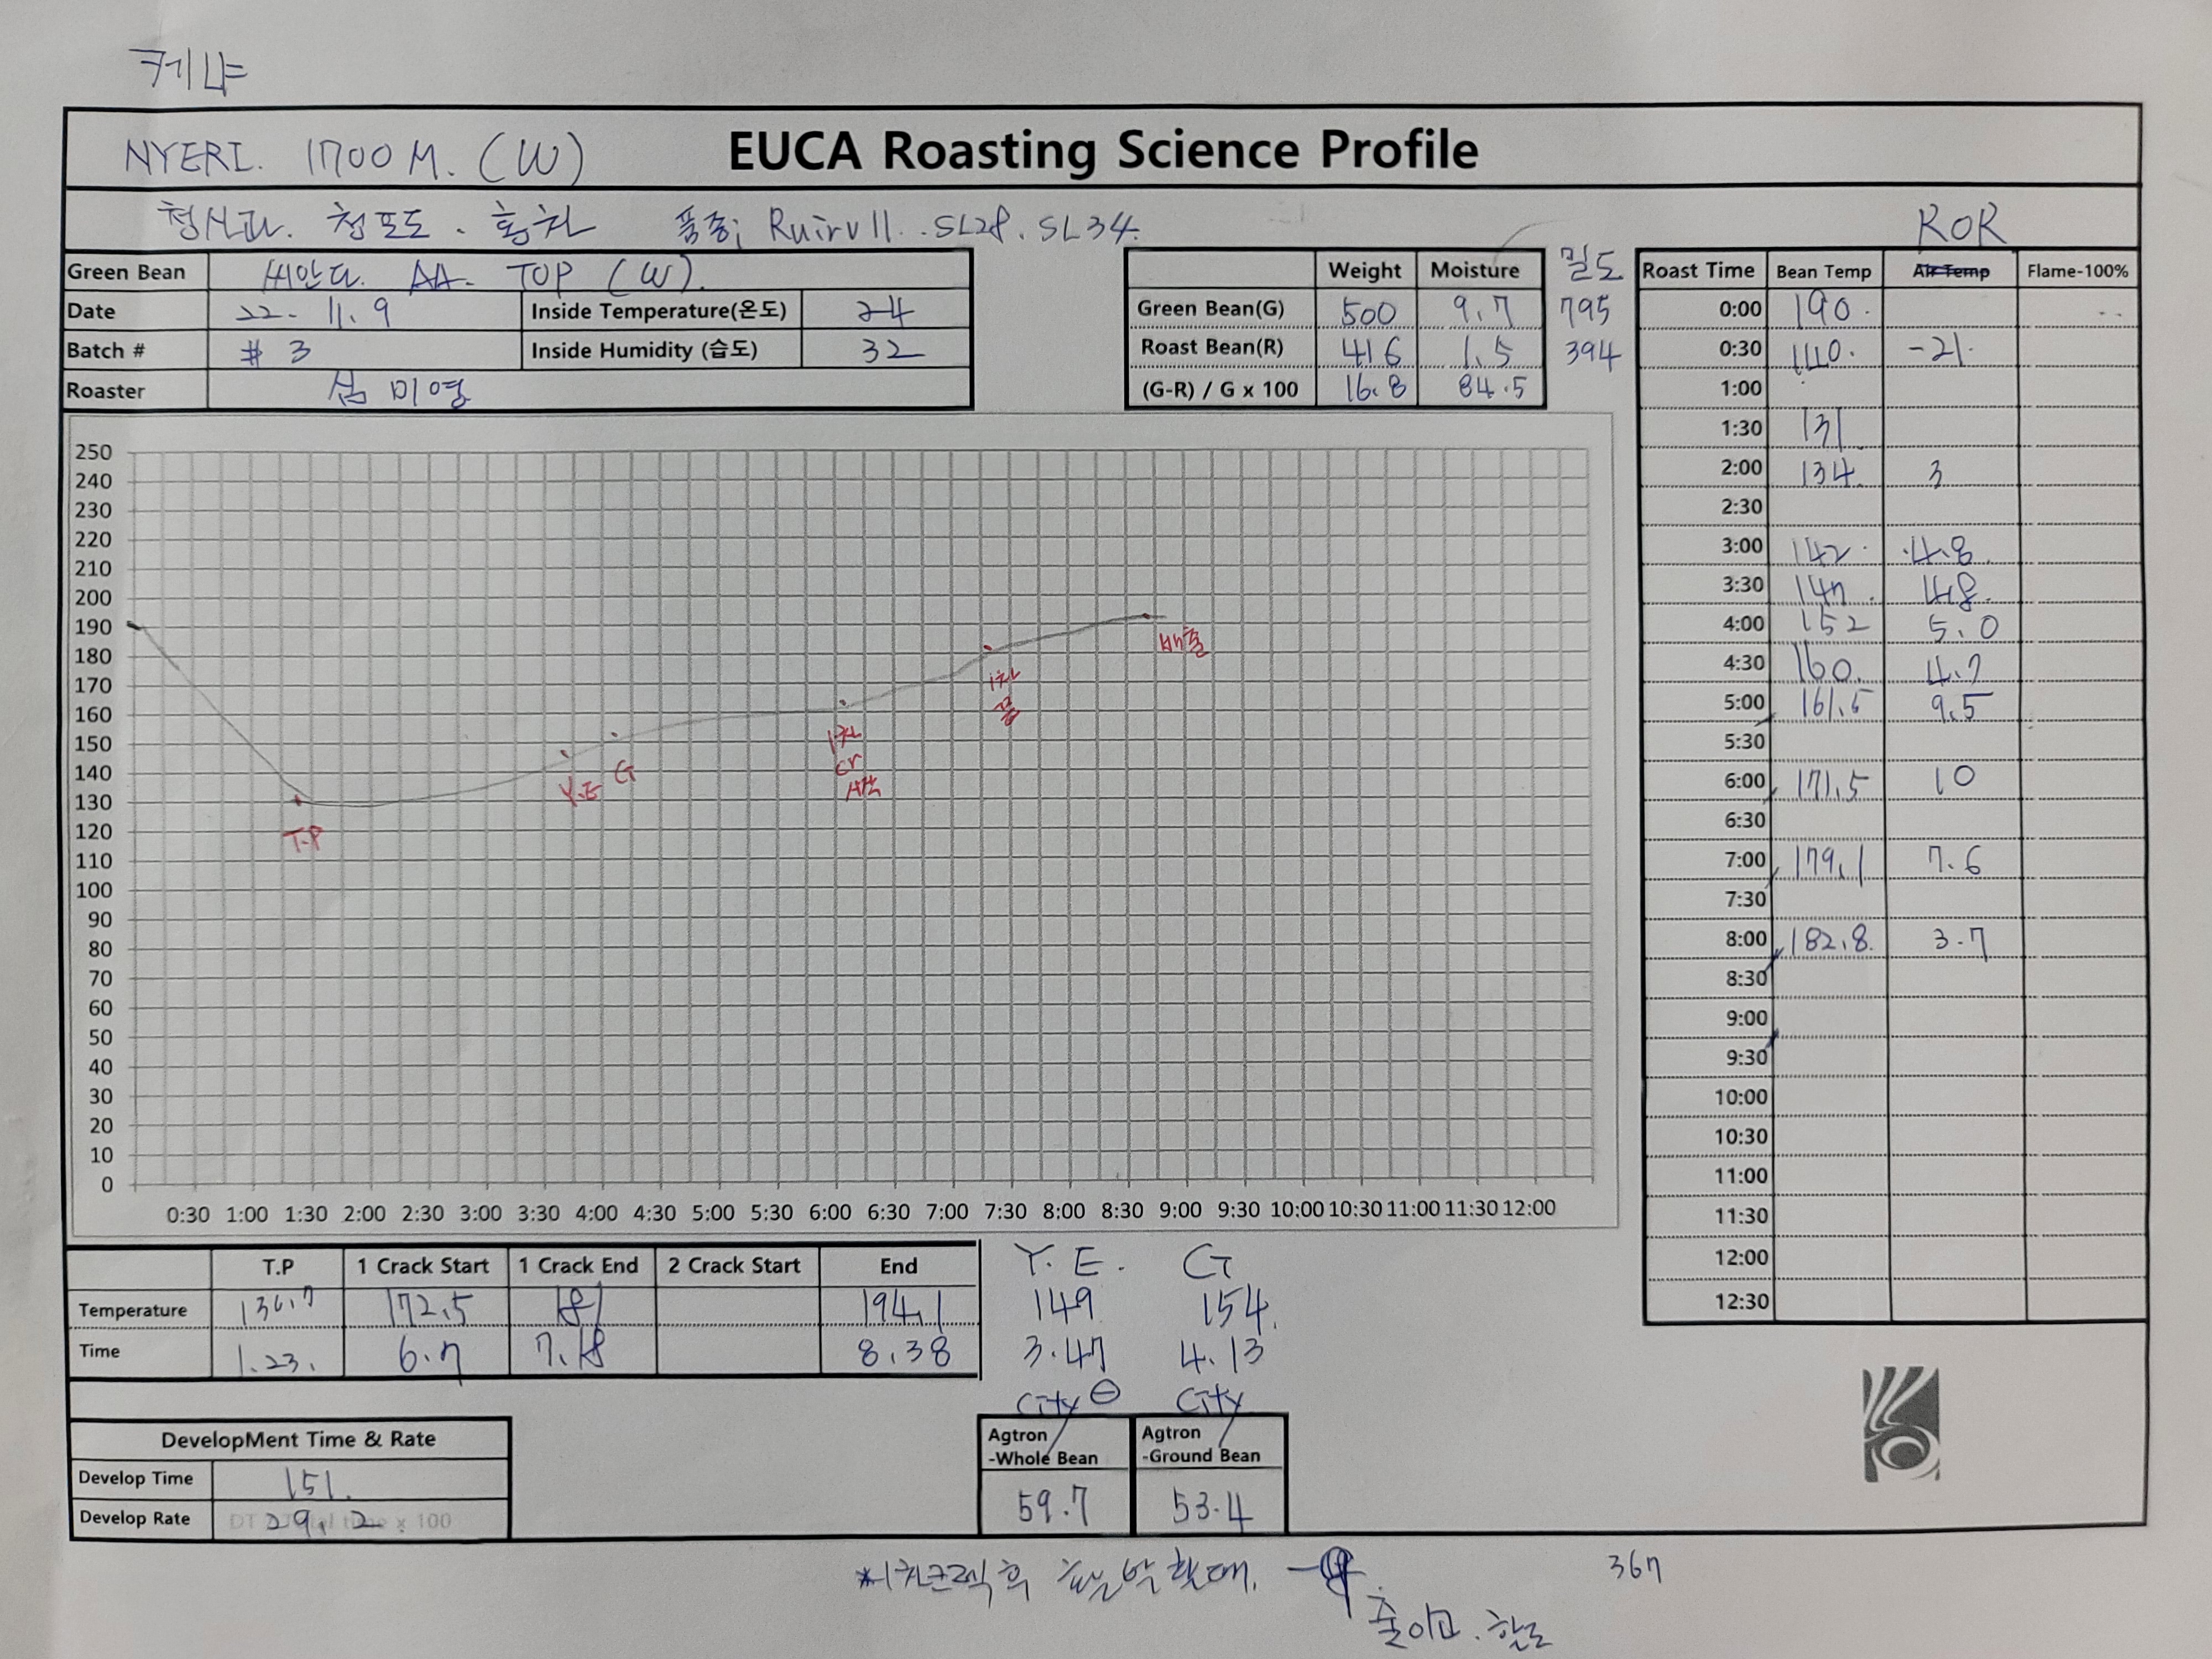 케냐
NYERI. 1700 M. (W) EUCA Roasting Science Profile
청사과. 청포도. 홍차 품종; Ruiru 11. .SL28. SL34.
Green Bean 씨안다. AA- TOP (W).
Date 22- 11.9 Inside Temperature(온도) 24
Batch # # 3 Inside Humidity (습도) 32
Roaster 심미영
Weight Moisture 밀도
Green Bean(G) 500 9.7 795
Roast Bean(R) 416 1.5 394
(G-R) / G x 100 16.8 84.5
RoR
Roast Time Bean Temp Air Temp Flame-100%
0:00 190.
0:30 140. -21.
1:00
1:30 131
2:00 134. 3
2:30
3:00 142. 4.8.
3:30 147. 4.8.
4:00 152 5.0
4:30 160. 4.7
5:00 161.5 9.5
5:30
6:00 171.5 10
6:30
7:00 179.1 7.6
7:30
8:00 182.8. 3.7
8:30
9:00
9:30
10:00
10:30
11:00
11:30
12:00
12:30
250
240
230
220
210
200
190
180
170
160
150
140
130
120
110
100
90
80
70
60
50
40
30
20
10
0
T.P
Y.E
G
1차
cr
시작
1차
끝
배출
0:30 1:00 1:30 2:00 2:30 3:00 3:30 4:00 4:30 5:00 5:30 6:00 6:30 7:00 7:30 8:00 8:30 9:00 9:30 10:00 10:30 11:00 11:30 12:00
T.P 1 Crack Start 1 Crack End 2 Crack Start End Y. E. G
Temperature 136.7 172.5 181 194.1 149 154.
Time 1.23. 6.7 7.18 8.38 3.47 4.13
City ⊖ City
DevelopMent Time & Rate
Develop Time 151.
Develop Rate 29.2
Agtron -Whole Bean 59.7
Agtron -Ground Bean 53.4
*1차크랙 후
367
줄이고.